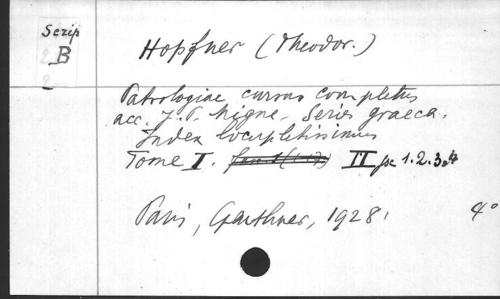 Scrip
B
2
Hopfner (Theodor.)
Patrologiae cursus completus
acc. J. P. Migne. Series graeca.
Index locupletissimus
Tome I. II fsc 1.2.3.4
Paris, Geuthner, 1928. 4°